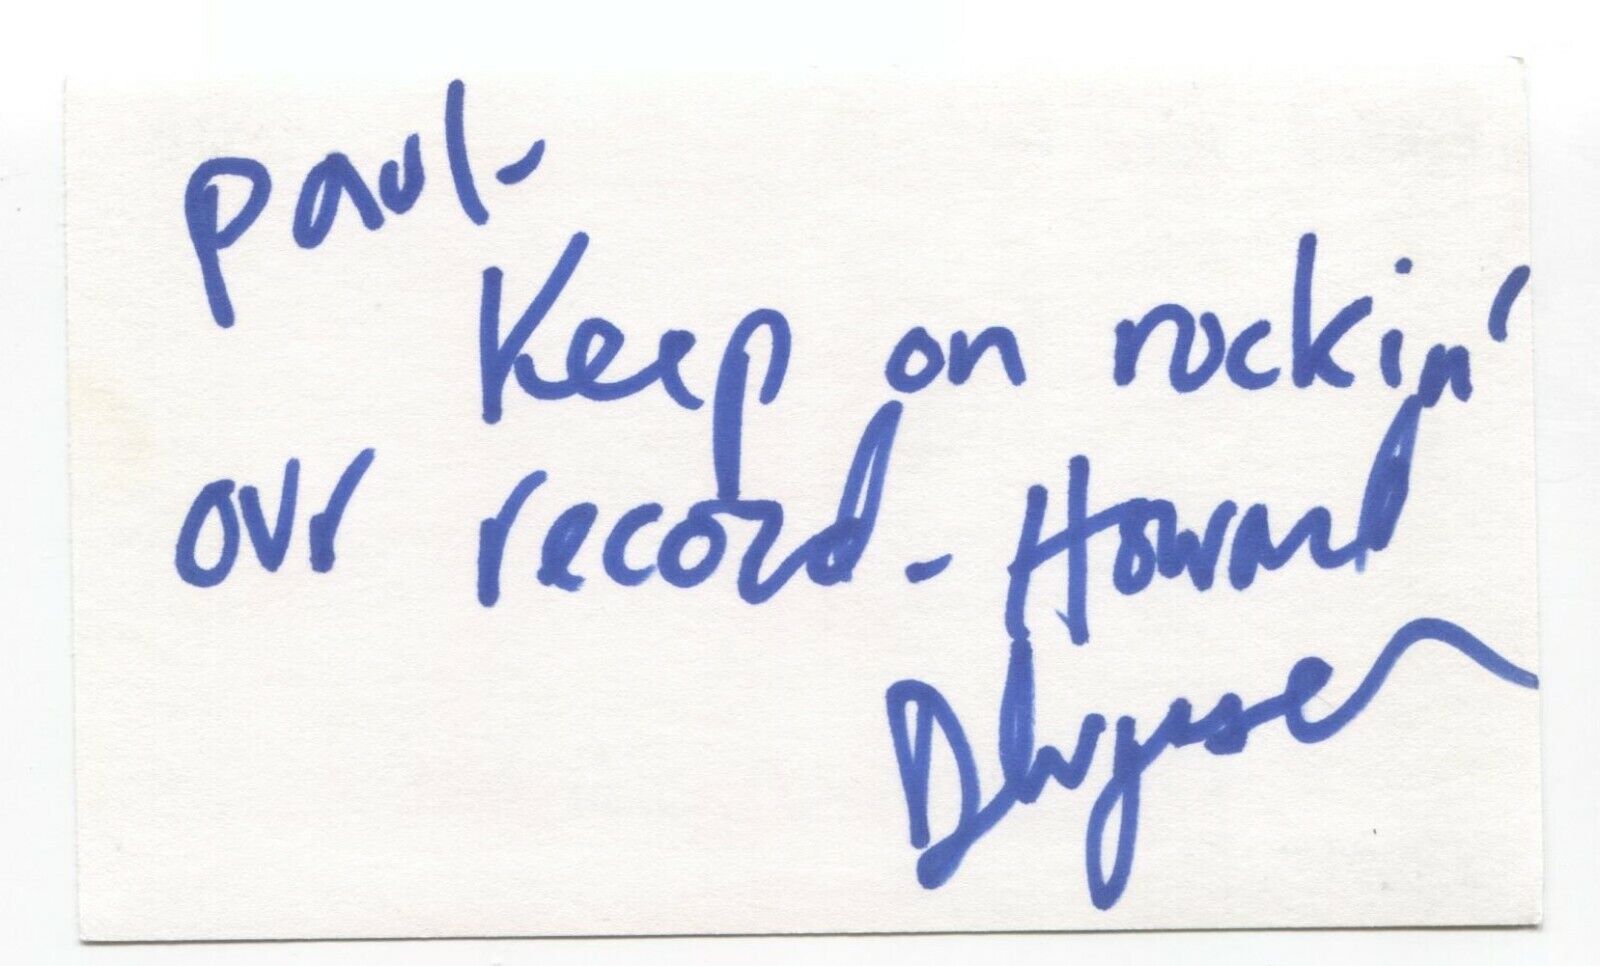 Paul-
Keep on rockin'
our record - Howard